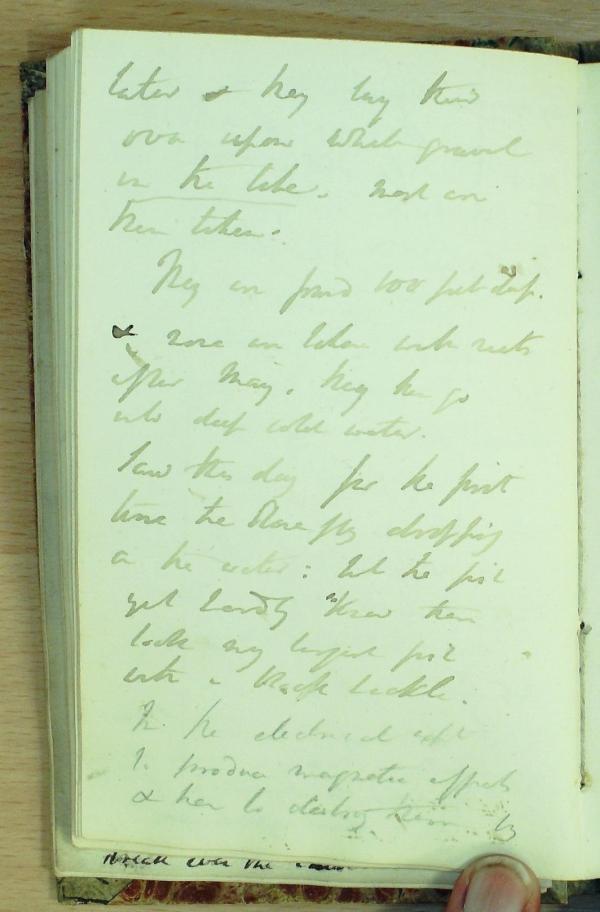 later & they lay their
ova upon white gravel
in the lake. most are
then taken.
They are found 100 feet deep.
& none are taken with nets
after May. they then go
into deep cold water.
Saw this day for the first
time the stone fly dropping
on the water: but the fish
yet hardly know them
took my largest fish
with a black hackle.
In the electrical expt
to produce magnetic effects
& then to destroy them by
break over the